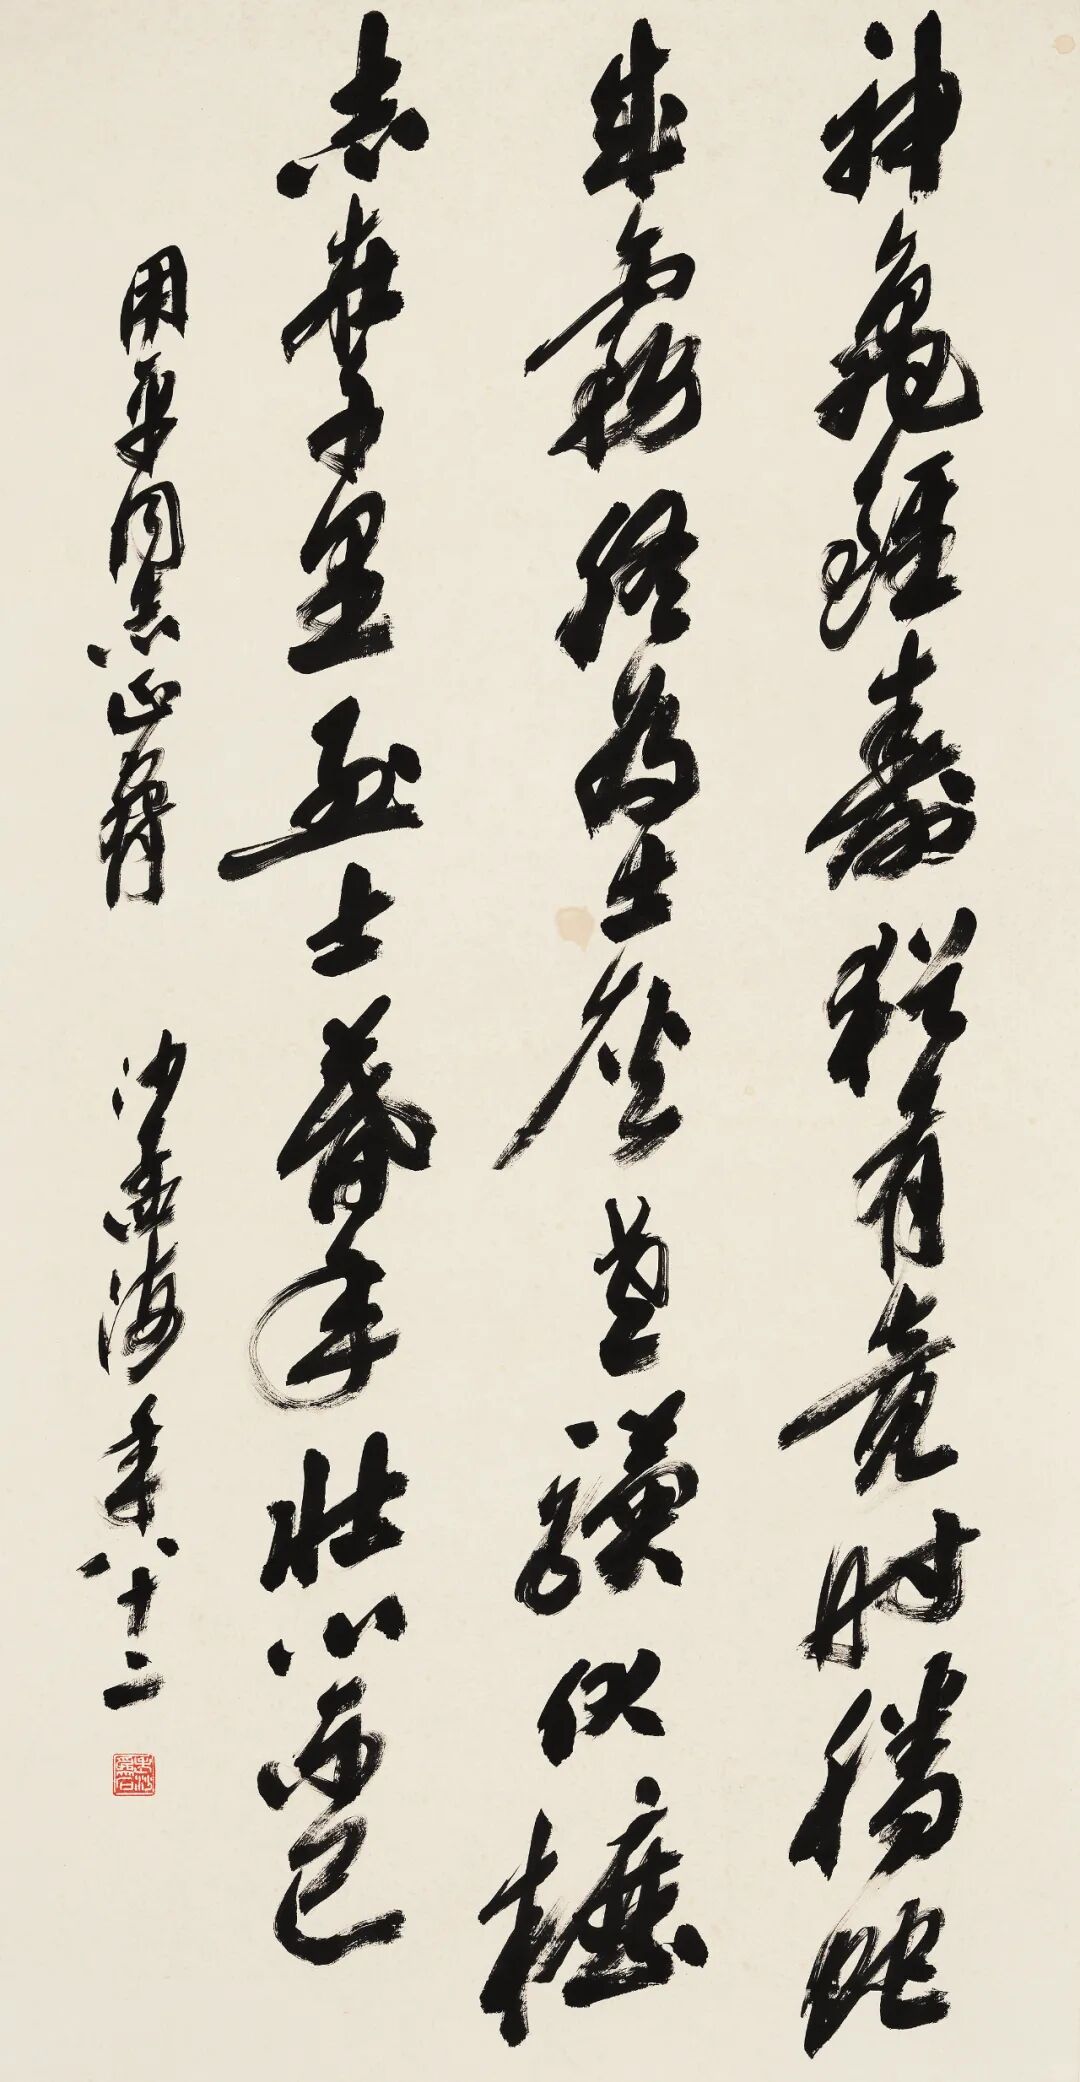 神龜雖壽猶有竟時騰蛇
乘霧終為土灰老驥伏櫪
志在千里烈士暮年壯心不已
用平同志正
沙孟海年八十二